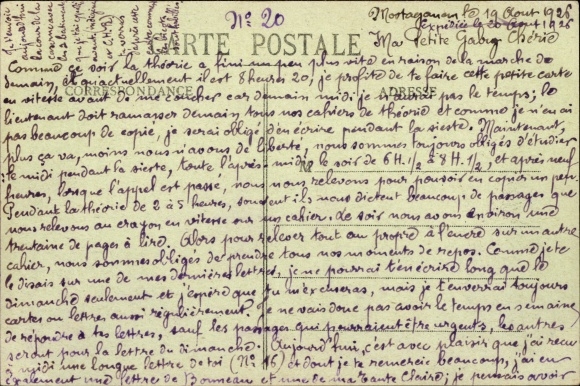 N° 20
Mostaganem le 19 Août 1926
expédiée le 20 Août 1926
CARTE POSTALE
Ma Petite Gaby Chérie
Comme ce soir la théorie a fini un peu plus vite en raison de la marche de
demain, et qu'actuellement il est 8 heures 20, je profite de te faire cette petite carte
CORRESPONDANCE
ADRESSE
en vitesse avant de me coucher car demain midi je n'aurai pas le temps, le
lieutenant doit ramasser demain, tous nos cahiers de théorie et comme je n'en ai
pas beaucoup de copié, je serai obligé d'en écrire pendant la sieste. Maintenant,
plus ça va, moins nous n'avons de liberté, nous sommes toujours obligés d'étudier
le midi pendant la sieste, toute l'après-midi, le soir de 6H.1/2 à 8H.1/2, et après neuf
heures, lorsque l'appel est passé, nous nous relevons pour pouvoir en copier un peu.
Pendant la théorie de 2 à 5 heures, souvent ils nous dictent beaucoup de passages que
nous relevons au crayon en vitesse sur un cahier. Le soir nous avons environ une
trentaine de pages à lire. Alors pour relever tout au propre à l'encre sur un autre
cahier, nous sommes obligés de prendre tous nos moments de repos. Comme je te
le disais sur une de mes dernières lettres, je ne pourrai t'en écrire long que le
dimanche seulement et j'espère que tu m'excuseras, mais je t'enverrai toujours
cartes ou lettres aussi régulièrement. Je ne vais donc pas avoir le temps en semaine
de répondre à tes lettres, sauf les passages qui pourraient être urgents, les autres
seront pour la lettre du dimanche. Aujourd'hui, c'est avec plaisir que j'ai reçu
à midi une longue lettre de toi (N° 16) et dont je te remercie beaucoup, j'ai eu
également une lettre de Bonneau et une de ma tante Claire, je pensais avoir